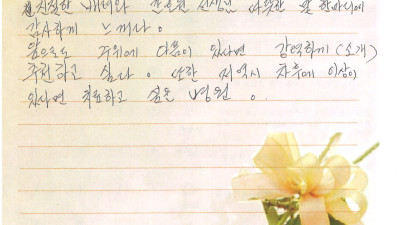 친절한 배려와 선생님 따뜻한 말 한마디에
감사하게 느꼈다.
앞으로도 주위에 다음이 있다면 강력하게 (소개)
추천하고 싶다. 또한 저역시 차후에 이상이
있다면 치료하고 싶은 병원.